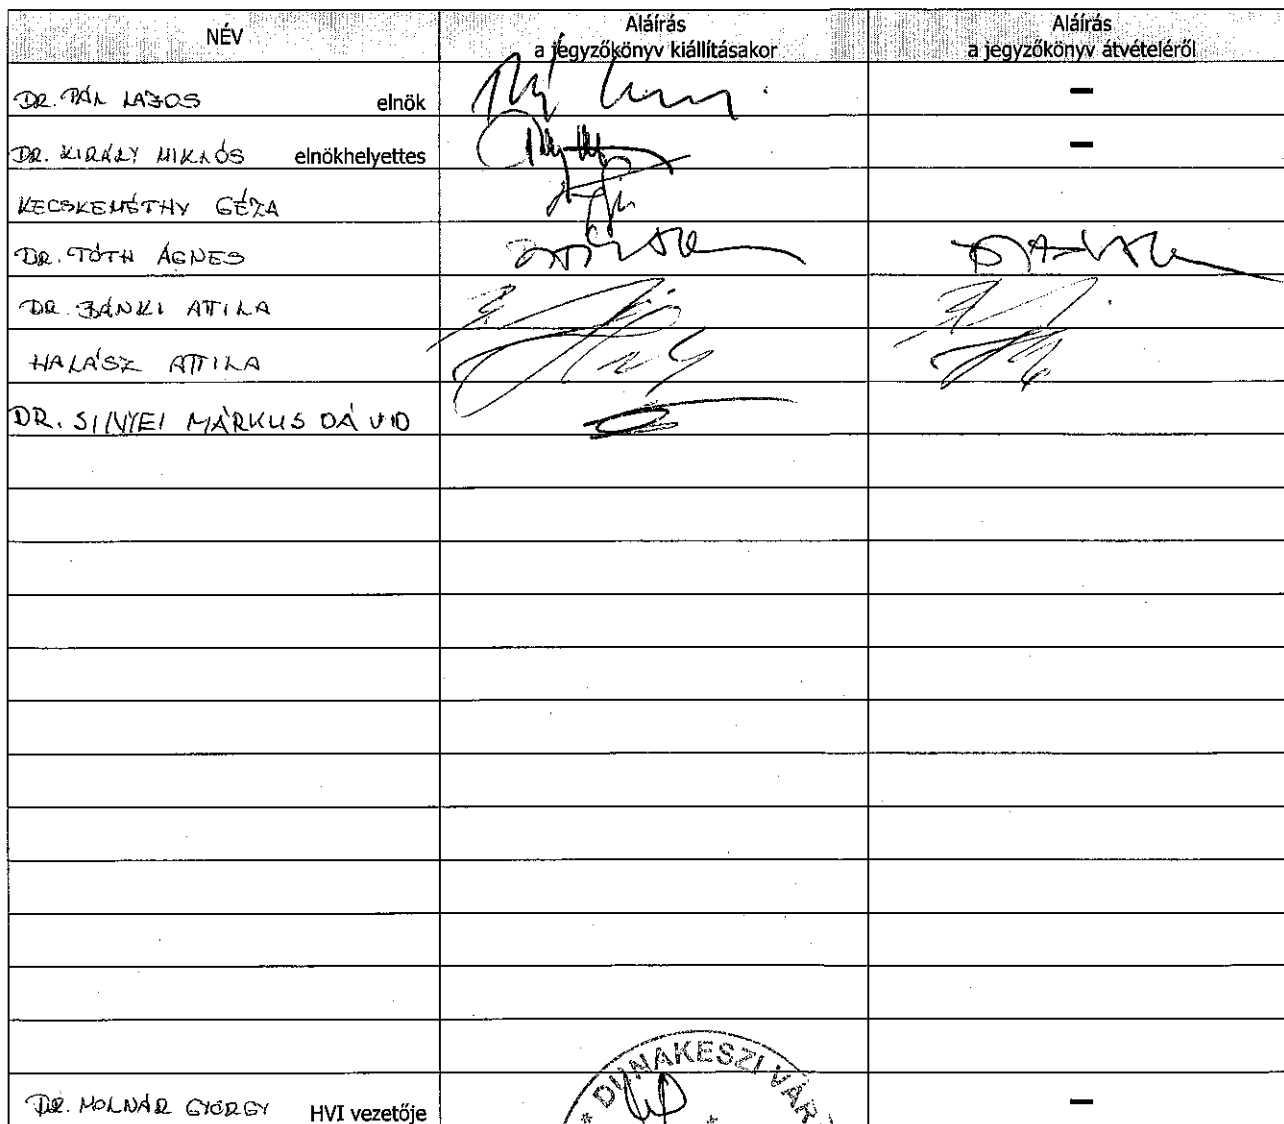 NÉV
Aláírás
a jegyzőkönyv kiállításakor
Aláírás
a jegyzőkönyv átvételéről
DR. PÁL LAJOS elnök –
DR. KIRÁLY MIKLÓS elnökhelyettes –
KECSKEMÉTHY GÉZA
DR. TÓTH ÁGNES
DR. BÁNKI ATTILA
HALÁSZ ATTILA
DR. SINYEI MÁRKUS DÁVID
* DUNAKESZI VÁR
DR. MOLNÁR GYÖRGY HVI vezetője –